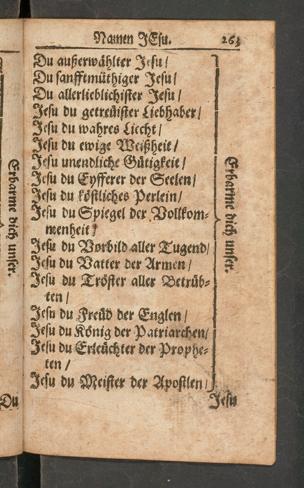 Namen JEsu. 263
Du außerwählter Jesu /
Du sanfftmüthiger Jesu /
Du allerlieblichister Jesu /
Jesu du getreüister Liebhaber /
Jesu du wahres Liecht /
Jesu du ewige Weißheit /
Jesu unendliche Gütigkeit /
Jesu du Eyfferer der Seelen /
Jesu du köstliches Perlein /
Jesu du Spiegel der Vollkom-
menheit /
Jesu du Vorbild aller Tugend /
Jesu du Vatter der Armen /
Jesu du Tröster aller Betrüb-
ten /
Jesu du Freüd der Englen /
Jesu du König der Patriarchen /
Jesu du Erleüchter der Prophe-
ten /
Jesu du Meister der Apostlen /
Erbarme dich unser.
Jesu
Erbarme dich unser.
Du